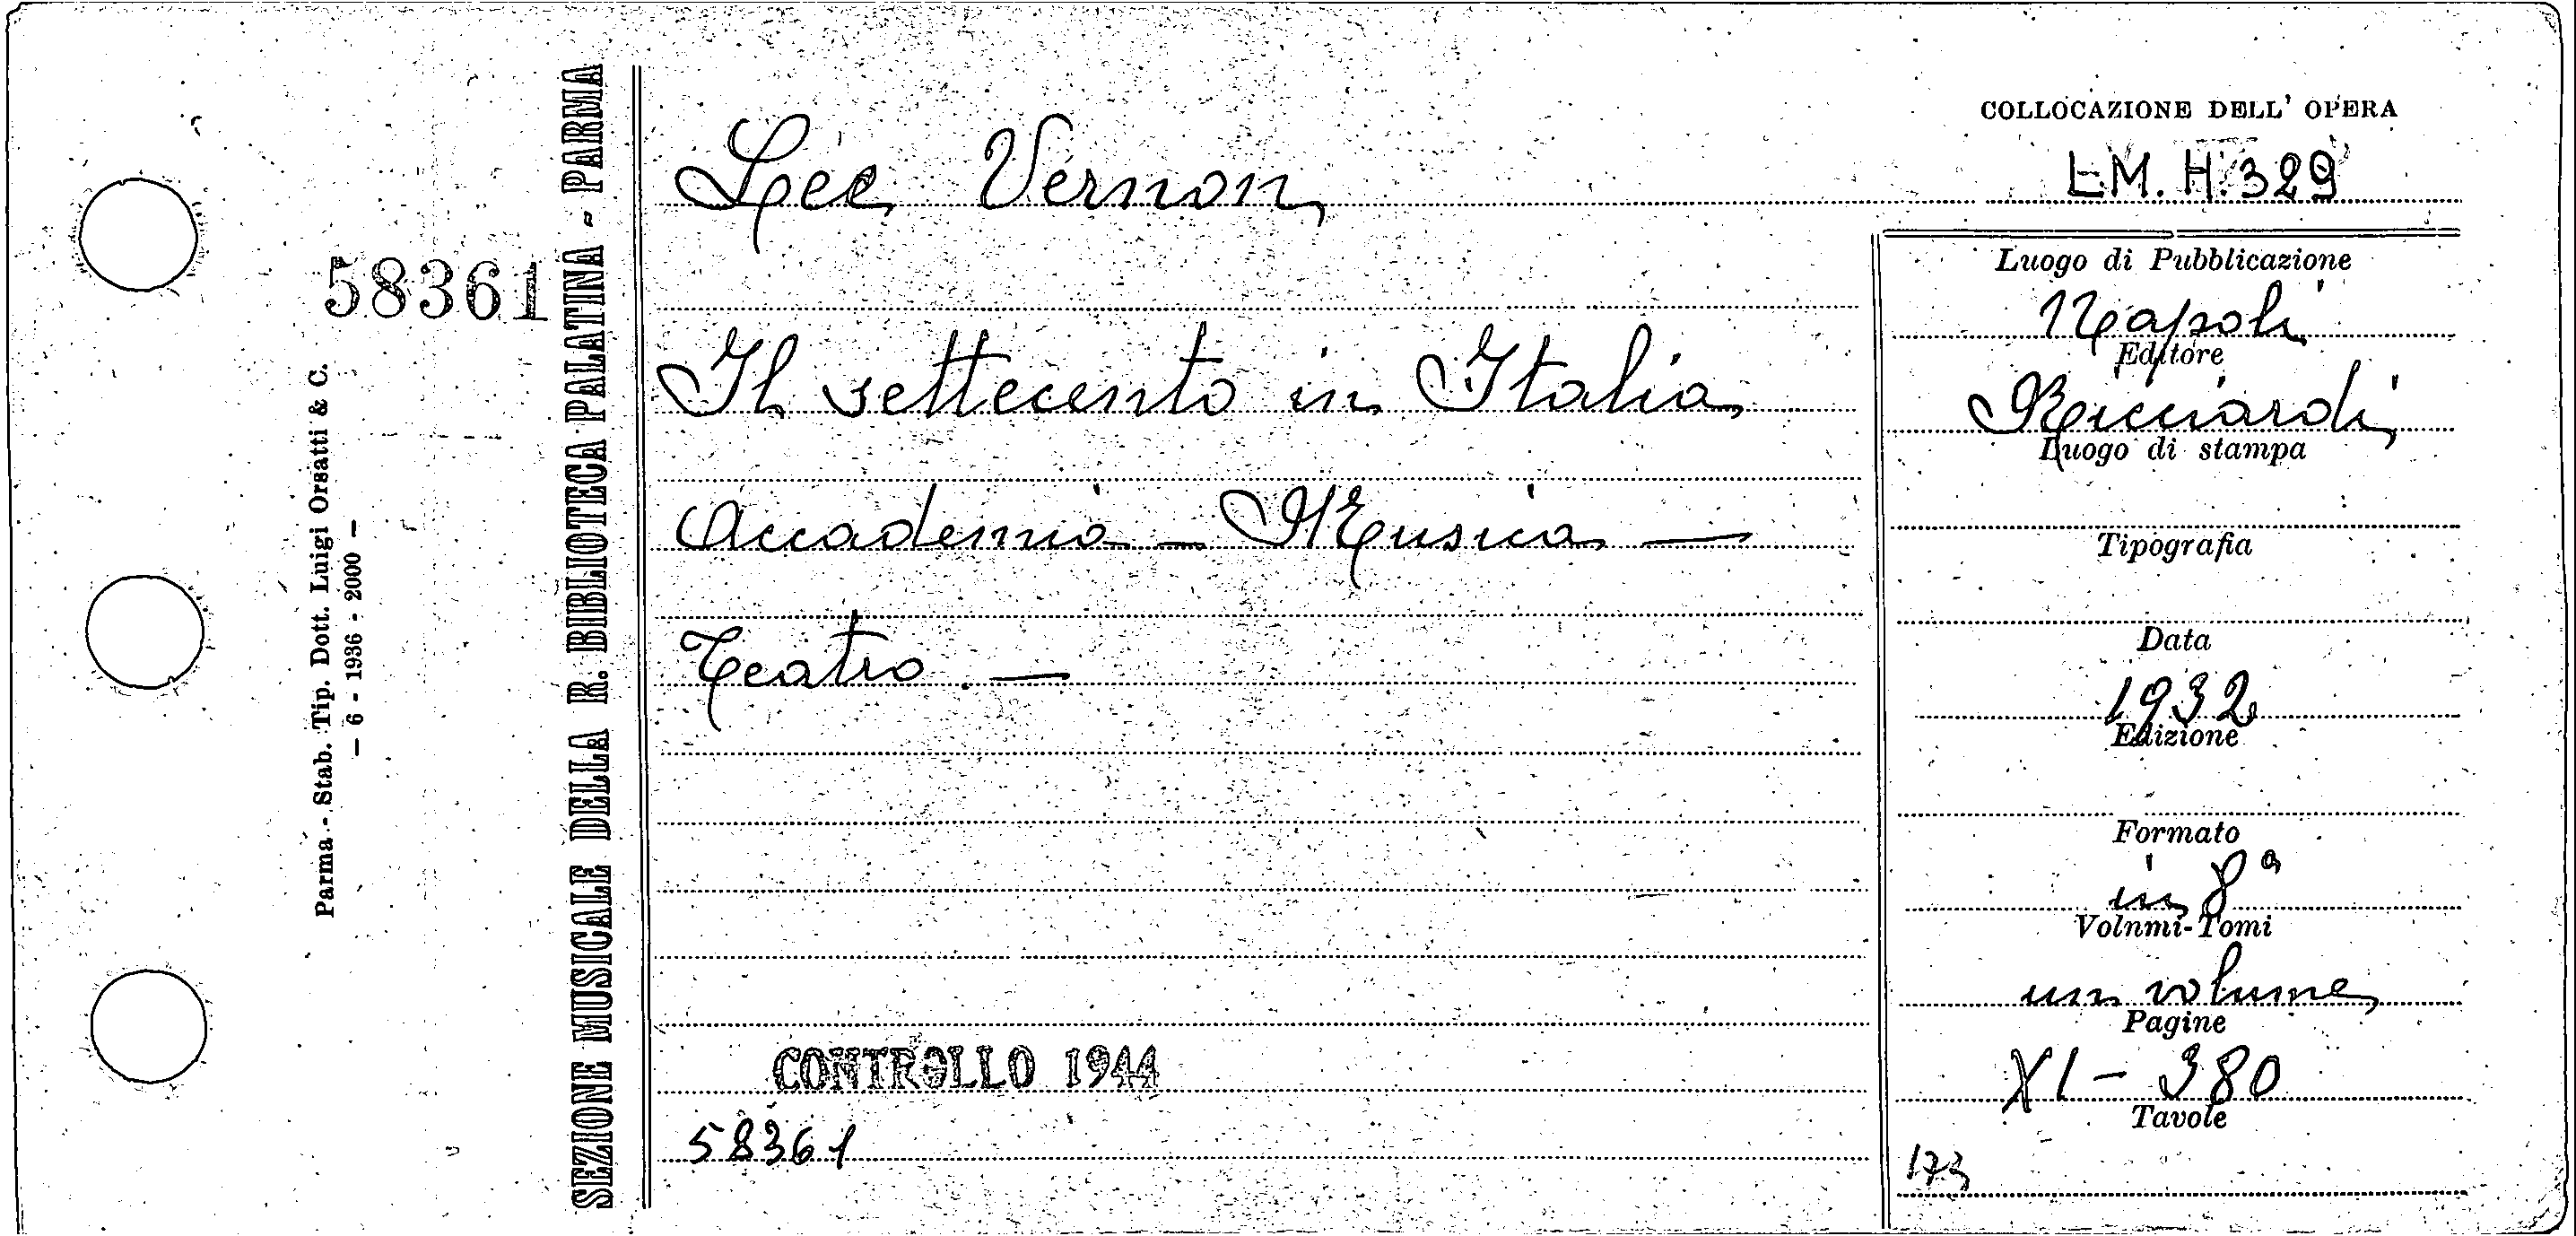 COLLOCAZIONE DELL' OPERA
Lee Vernon
LM. H. 329
58361
Luogo di Pubblicazione
Napoli
Editore
Il settecento in Italia
Ricciardi
Luogo di stampa
Accademia - Musica -
Tipografia
Teatro. -
Data
1932
Edizione
Formato
in 8°
Volnmi-Tomi
un volume
Pagine
CONTROLLO 1944
XI - 380
Tavole
58361
173
SEZIONE MUSICALE DELLA R. BIBLIOTECA PALATINA - PARMA
Parma - Stab. Tip. Dott. Luigi Orsatti & C.
- 6 - 1936 - 2000 -